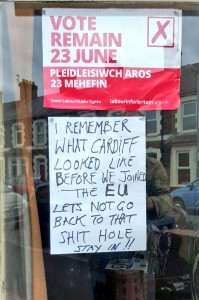 VOTE
REMAIN
23 JUNE
PLEIDLEISIWCH AROS
23 MEHEFIN
labourinforbritain.org.uk
I REMEMBER
WHAT CARDIFF
LOOKED LIKE
BEFORE WE JOINED
— THE EU
LETS NOT GO
BACK TO THAT
SHIT HOLE
STAY IN !!